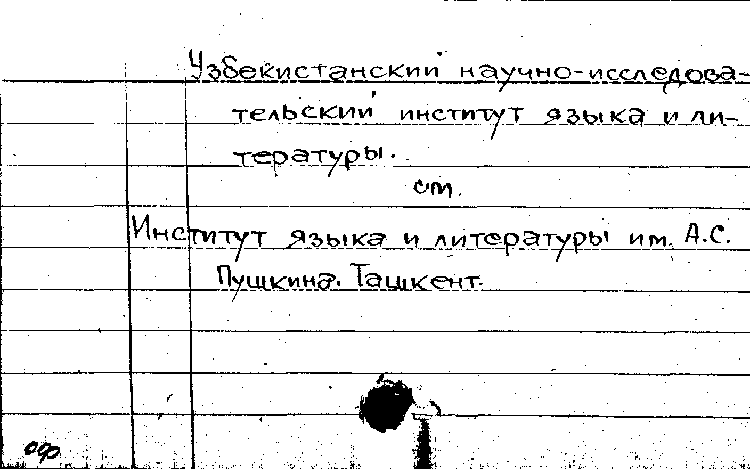 Узбекистанский научно-исследова-
тельский институт языка и ли-
тературы.
см.
Институт языка и литературы им. А.С.
Пушкина. Ташкент.
оф